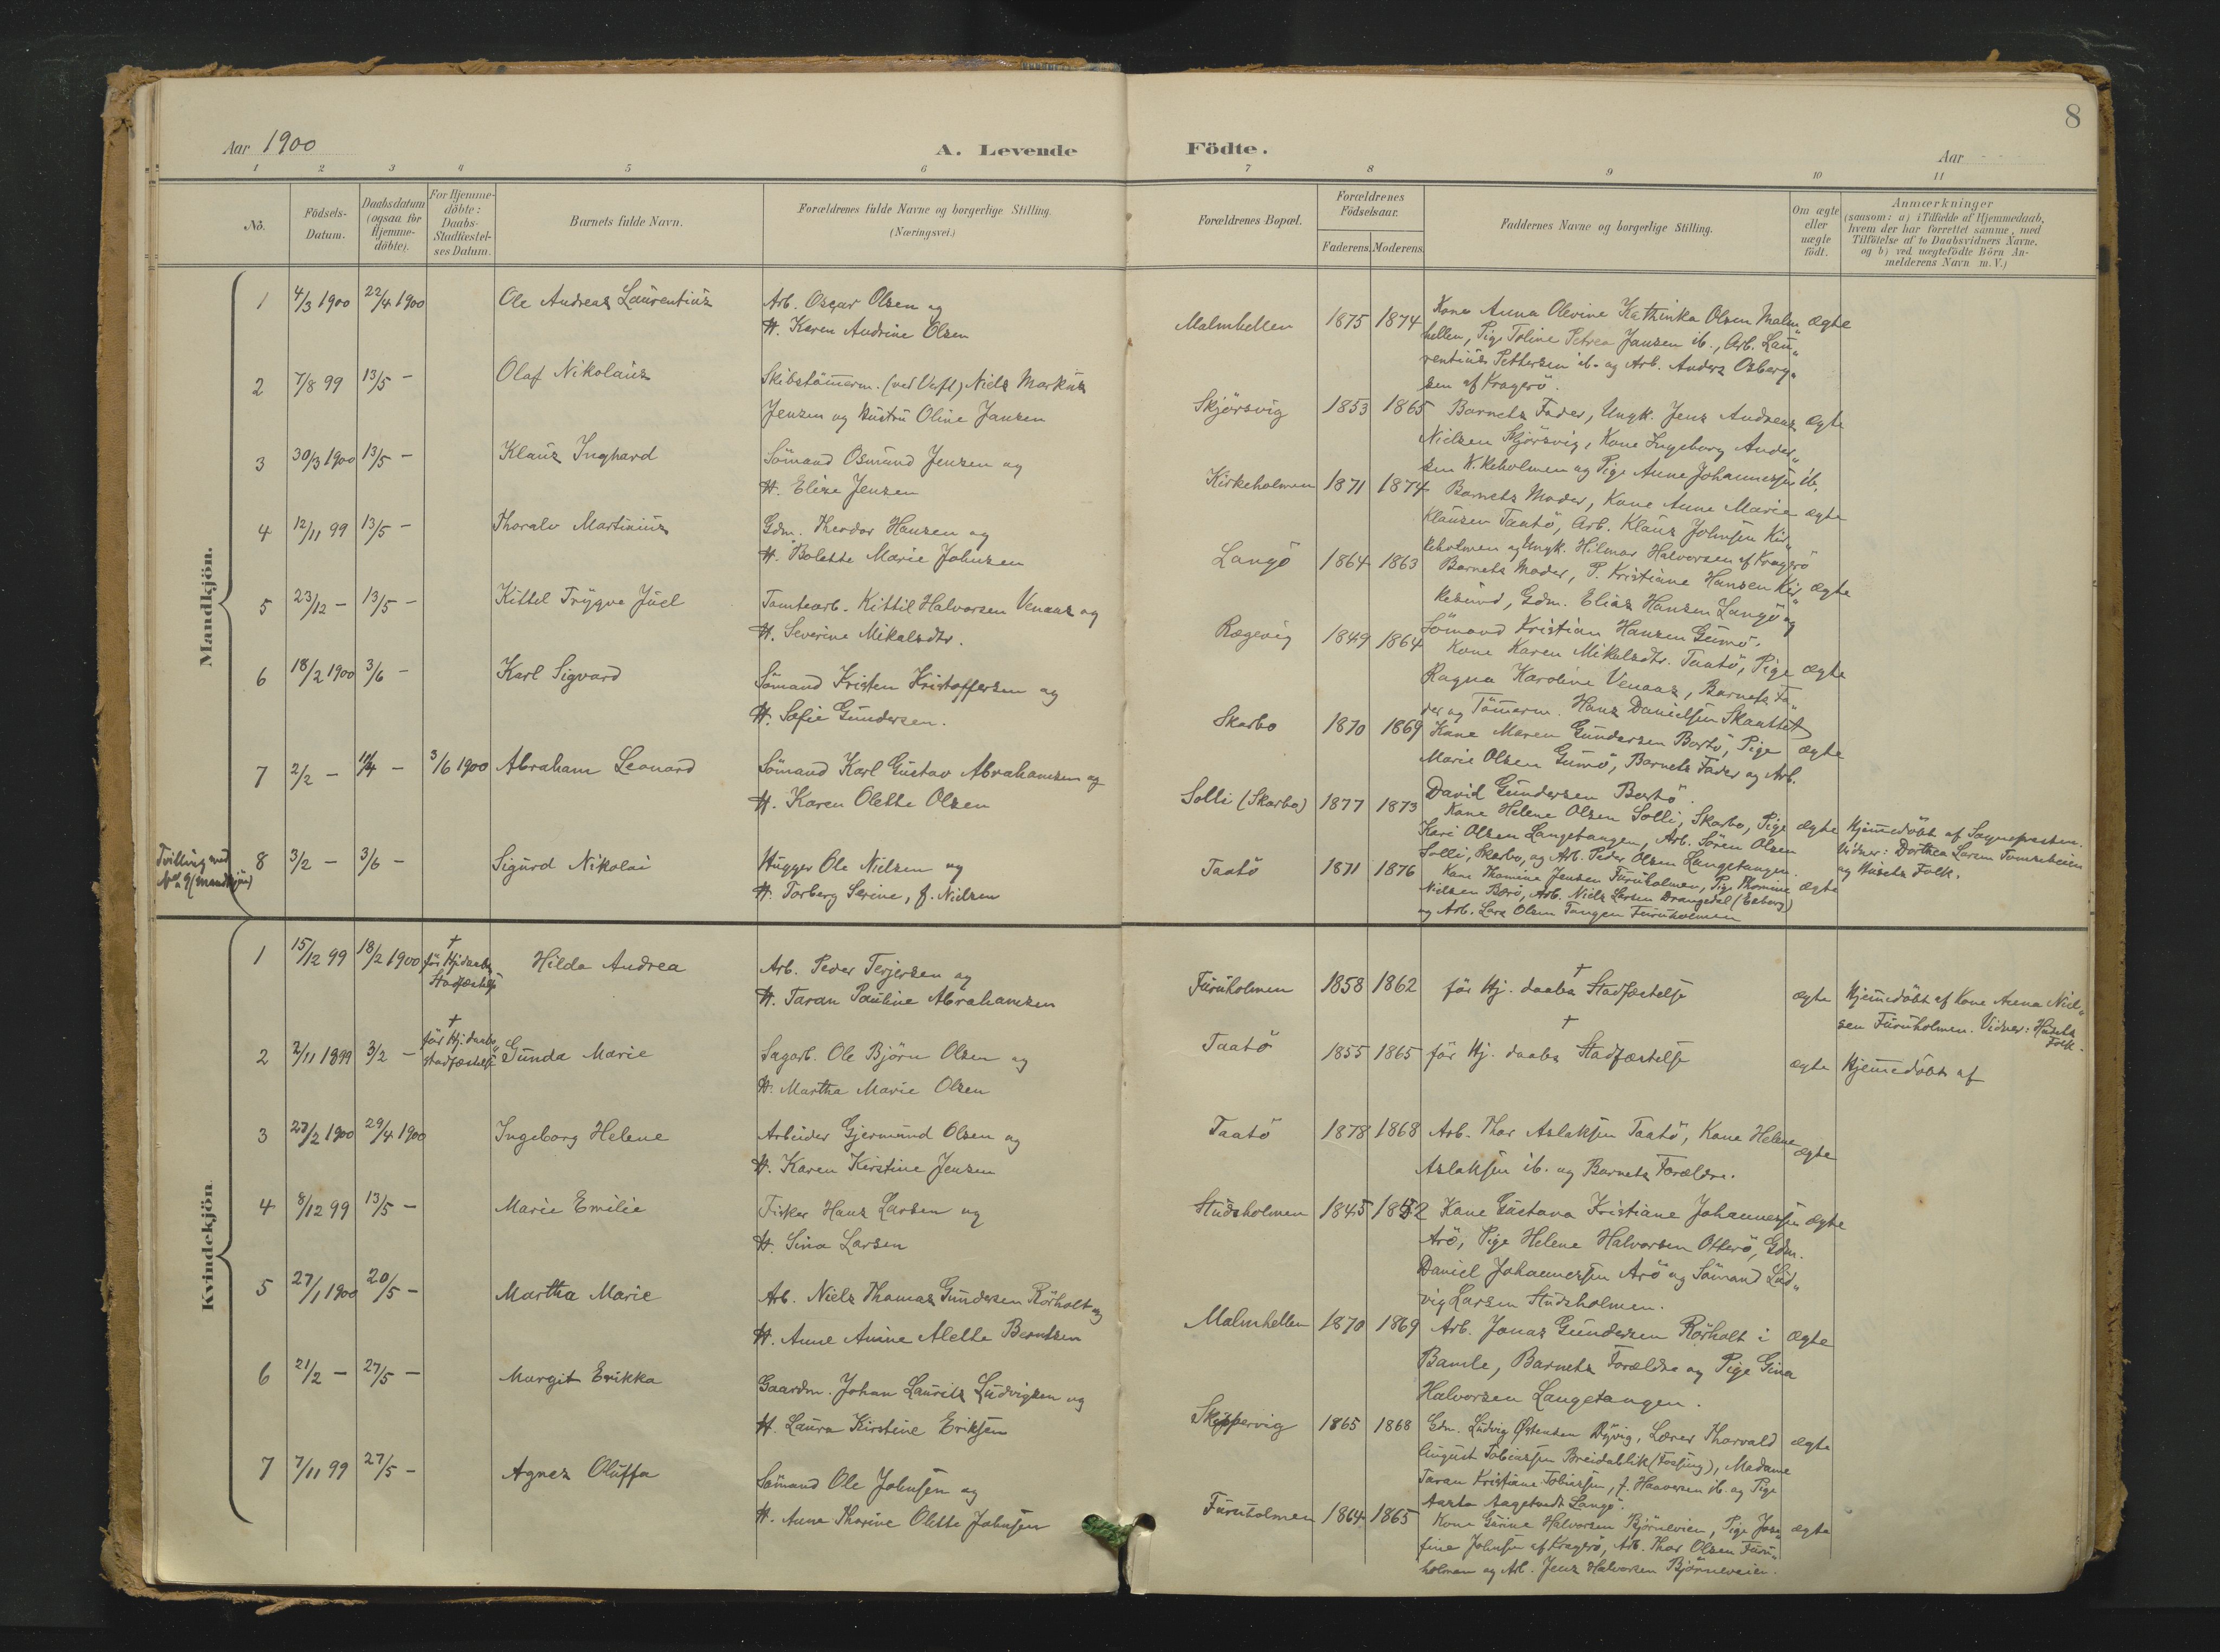 8
Aar 1900
A. Levende
Födte.
Aar
1 2 3 4 5 6 7 8 9 10 11
No.
Födsels-
Datum.
Daabsdatum
(ogsaa for
Hjemme-
döbte).
For Hjemme-
döbte:
Daabs-
Stadfæstel-
ses Datum.
Barnets fulde Navn.
Forældrenes fulde Navne og borgerlige Stilling.
(Næringsvei.)
Forældrenes Bopæl.
Forældrenes
Födselsaar.
Faderens. Moderens.
Faddernes Navne og borgerlige Stilling.
Om ægte
eller
uægte
födt.
Anmærkninger
(saasom: a) i Tilfælde af Hjemmedaab,
hvem der har forrettet samme, med
Tilföielse af to Daabsvidners Navne,
og b) ved uægtefödte Börn An-
melderens Navn m. V.)
Mandkjön.
1 4/3 1900 22/4 1900 Ole Andreas Laurentius
Arb. Oscar Olsen og
H. Karen Andrine Olsen
Malmhellen 1875 1874 ægte
Kone Anna Olevine Kathinka Olsen Malm„
hellen, Pige Toline Petrea Jansen ib., Arb. Lau„
rentius Pettersen ib. og Arb. Anders Osberg„
sen af Kragerö.
2 7/8 99 13/5 – Olaf Nikolaus
Skibstömerm. (ved Verft) Niels Markus
Jensen og Hustru Oline Jansen
Skjörsvig 1853 1865 ægte
Barnets Fader, Ungk. Jens Andreas
Nielsen Skjörsvig, Kone Ingeborg Ander„
sen Kirkeholmen og Pige Anne Johannessen ib.
3 30/3 1900 13/5 – Klaus Inghard
Sömand Osmund Jensen og
H. Elise Jensen
Kirkeholmen 1871 1874 ægte
Barnets Moder, Kone Anne Marie
Klausen Taatö, Arb. Klaus Johnsen Kir„
keholmen og Ungk. Hilmar Halvorsen af Kragerö
4 12/11 99 13/5 – Thoralv Martinius
Gdm. Theodor Hansen og
H. Bolette Marie Johnsen
Langö 1864 1863 ægte
Barnets Moder, P. Kristiane Hansen Kir„
kesund, Gdm. Elias Hansen Langö og
Sömand Kristian Hansen Gumö.
5 23/12 – 13/5 – Kittel Trygve Juel
Tomtearb. Kittil Halvorsen Venaas og
H. Severine Mikalsdtr.
Rægevig 1849 1864 ægte
Kone Karen Mikalsdtr. Taatö, Pige
Ragna Karoline Venaas, Barnets Fa„
der og Tömerm. Hans Danielsen Skaattet
6 18/2 1900 3/6 – Karl Sigvard
Sömand Kristen Kristoffersen og
H. Sofie Gundersen.
Skarbo 1870 1869 ægte
Kone Maren Gundersen Bortö, Pige
Marie Olsen Gumö, Barnets Fader og Arb.
David Gundersen Bortö.
7 2/2 – 11/4 – 3/6 1900 Abraham Leonard
Sömand Karl Gustav Abrahamsen og
H. Karen Olette Olsen
Solli (Skarbo) 1877 1873 ægte
Kone Helene Olsen Solli, Skarbo, Pige
Kari Olsen Langetangen, Arb. Sören Olsen
Solli, Skarbo, og Arb. Peder Olsen Langetangen.
Hjemmedöbt af Sognepresten.
Vidner: Dorthea Larsen
og Husets Folk.
Tvilling med
No 9 (Mandkjön)
8 3/2 – 3/6 – Sigurd Nikolai
Hugger Ole Nilsen og
H. Torberg Serine, f. Nielsen
Taatö 1871 1876 ægte
Kone Thomine Jensen Furuholmen, Pige Thomine
Nielsen Barö, Arb. Niels Larsen Drangedal
og Arb. Lars Olsen Tangen Furuholmen
Kvindekjön
1 15/12 99 18/2 1900 † för Hj.daabs Stadfæstelse Hilda Andrea
Arb. Peder Terjersen og
H. Taran Pauline Abrahamsen
Furuholmen 1858 1862 † för Hj. daabs Stadfæstelse ægte
Hjemmedöbt af Kone Anna Niel„
sen Furuholmen. Vidner: Husets
Folk.
2 2/11 1899 3/2 – † för Hj. daabs„ stadfæstelse Gunda Marie
Sagarb. Ole Björn Olsen og
H. Martha Marie Olsen
Taatö 1855 1865 † för Hj. daabs Stadfæstelse ægte Hjemmedöbt af
3 27/2 1900 29/4 1900 Ingeborg Helene
Arbeider Gjermund Olsen og
H. Karen Kirstine Jensen
Taatö 1878 1868 ægte
Arb. Thor Aslaksen Taatö, Kone Helene
Aslaksen ib. og Barnets Forældre.
4 8/12 99 13/5 – Marie Emilie
Fisker Hans Larsen og
H. Sina Larsen
Studsholmen 1845 1852 ægte
Kone Gustava Kristiane Johannessen
Arö, Pige Helene Halvorsen Otterö, Gdm.
Daniel Johannessen Arö og Sömand Lud„
vig Larsen Studsholmen.
5 27/1 1900 20/5 – Martha Marie
Arb. Niels Thomas Gundersen Rörholt og
H. Anne Anine Alette Berntsen
Malmhellen 1870 1869 ægte
Arb. Jonas Gundersen Rörholt i
Bamle, Barnets Forældre og Pige Gina
Halvorsen Langetangen.
6 21/2 – 27/5 – Margit Erikka
Gaardm. Johan Laurits Ludvigsen og
H. Laura Kirstine Eriksen
Skippervig 1865 1868 ægte
Gdm. Ludvig Østensen Dyvig, Lærer Thorvald
August Tobiassen Breidablik (Fossing), Madame
Taran Kristiane Tobiassen, f. Haavorsen ib. og Pige
Aasta Aagetveit Langö.
7 7/11 99 27/5 – Agnes Oluffa
Sömand Ole Johnsen og
H. Anne Thorine Olette Johnsen
Furuholmen 1864 1865 ægte
Kone Gurine Halvorsen Björneveien, Pige Jose„
fine Johnsen af Kragerö, Arb. Thor Olsen Furu„
holmen og Arb. Jens Halvorsen Björneveien.